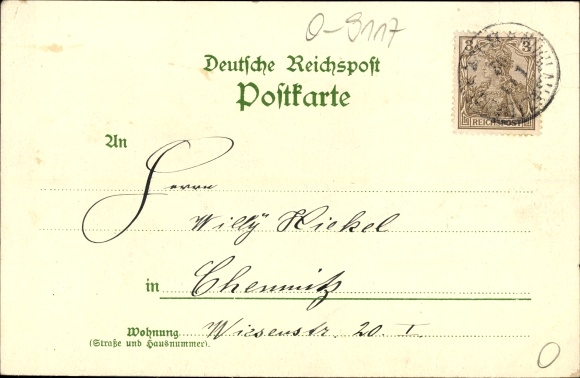 O-9117
Deutsche Reichspost
Postkarte
3 3
REICHSPOST
An
Herrn
Willÿ Kickel
in Chemnitz
Wohnung Wiesenstr. 20. I.
(Straße und Hausnummer).